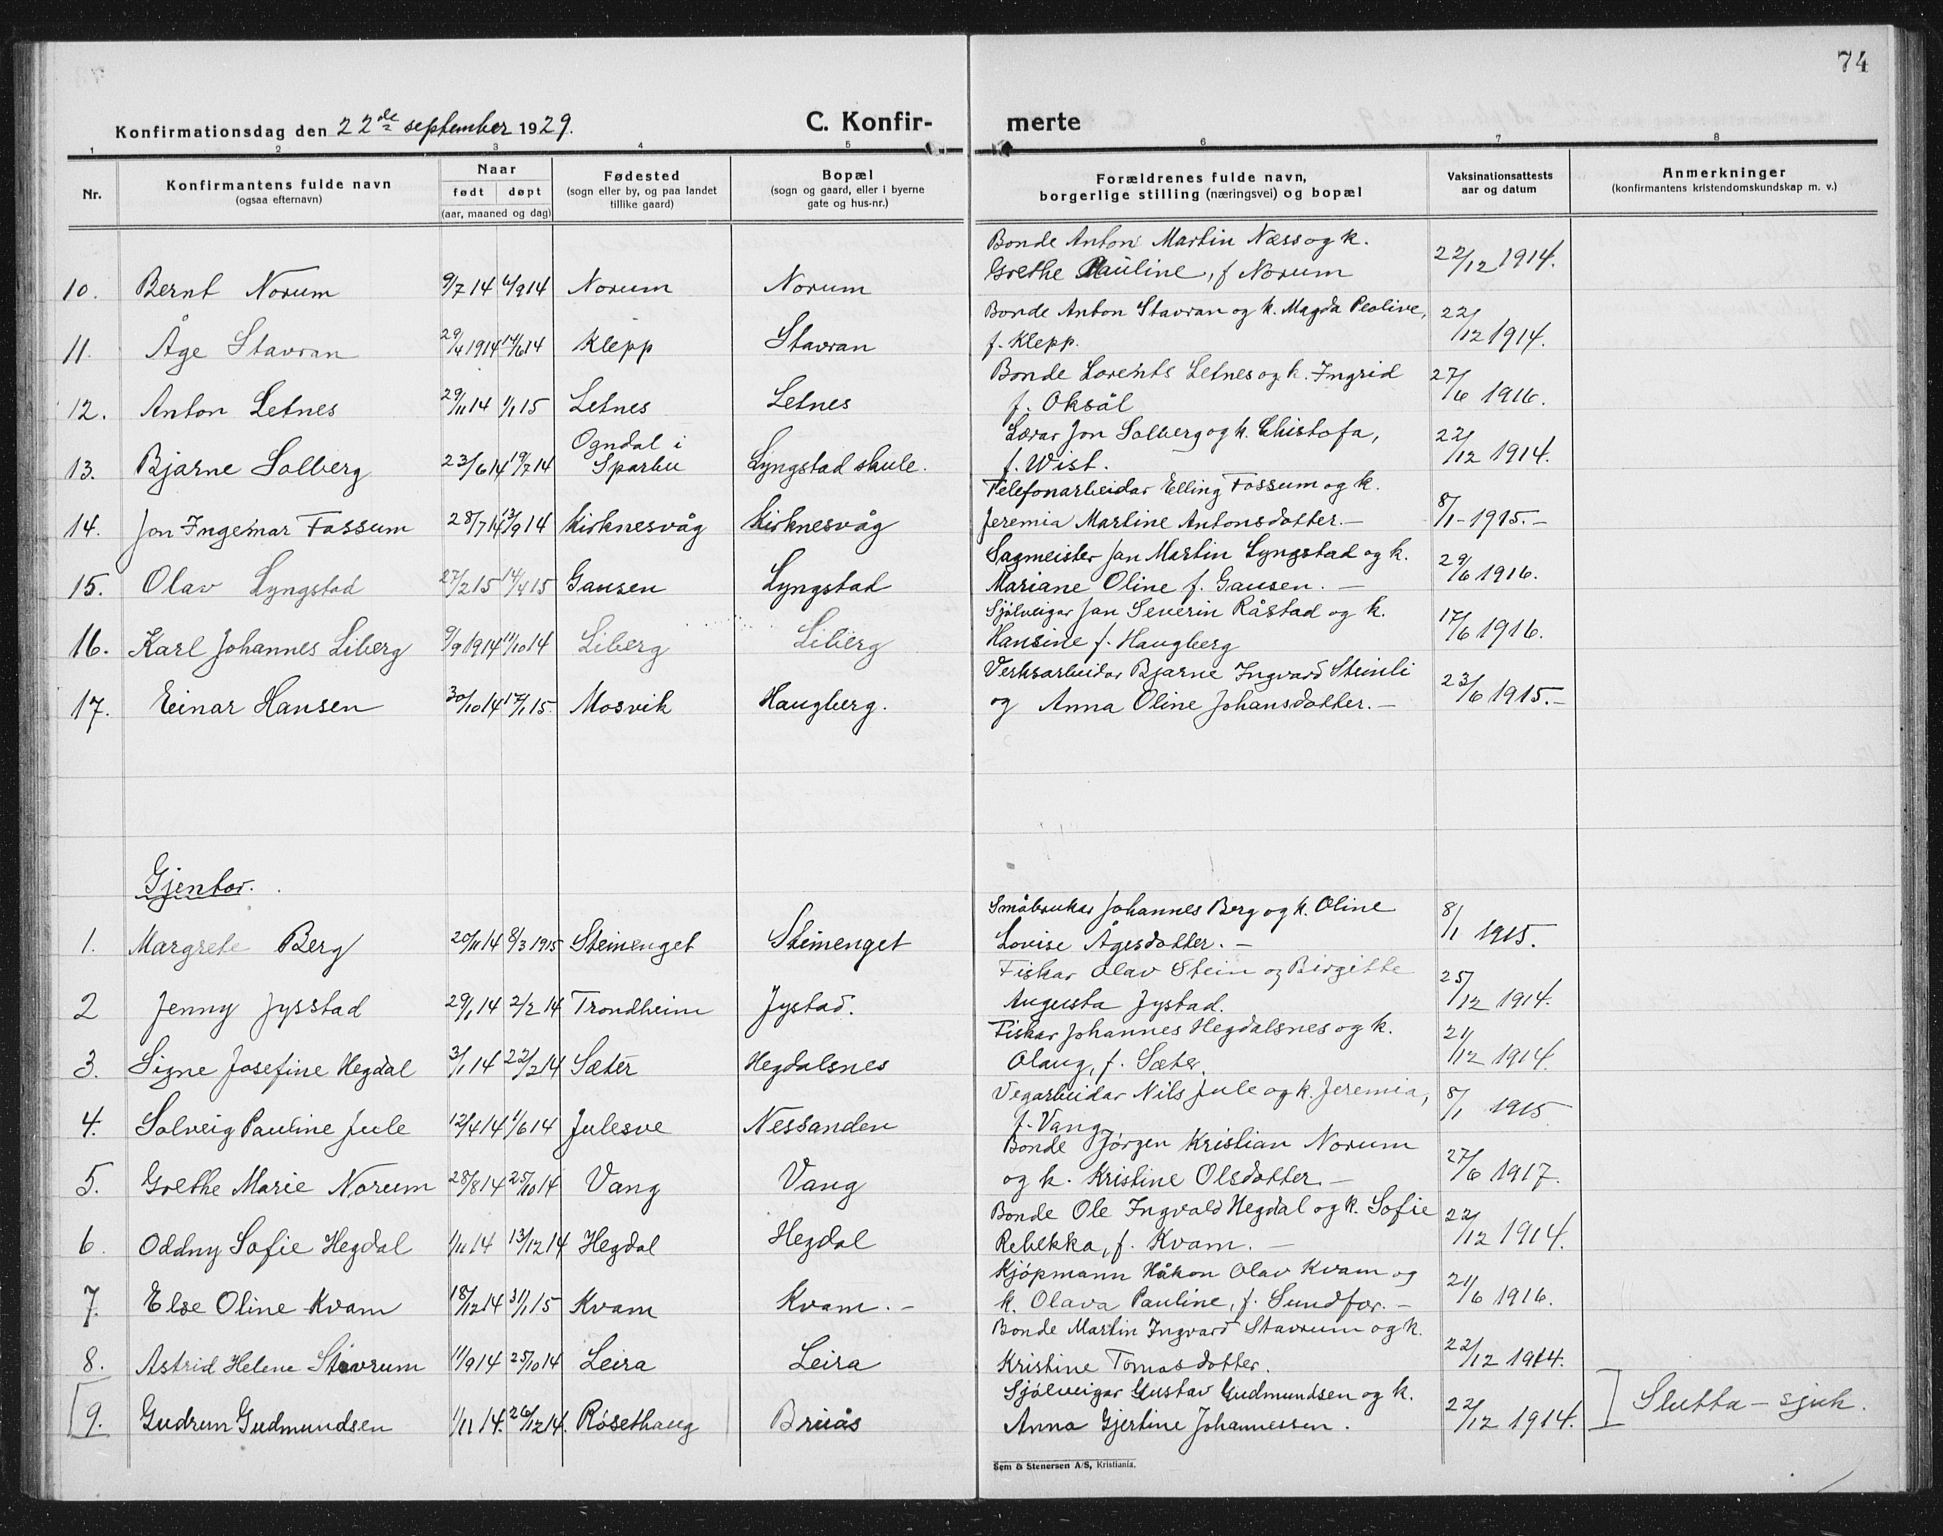 74
Konfirmationsdag den 22de september 1929. C. Konfirmerte
1 2 3 4 5 6 7 8
Nr. Konfirmantens fulde navn (ogsaa efternavn) Naar født døpt (aar, maaned og dag) Fødested (sogn eller by, og paa landet tillike gaard) Bopæl (sogn og gaard, eller i byerne gate og hus-nr.) Forældrenes fulde navn, borgerlige stilling (næringsvei) og bopæl Vaksinationsattests aar og datum Anmerkninger (konfirmantens kristendomskundskap m. v.)
10. Bernt Norum 9/7 14 6/9 14 Norum Norum Bonde Anton Martin Næss og k. Grethe Pauline, f Norum 22/12 1914.
11. Åge Stavran 29/4 1914 14/6 14 Klepp Stavran Bonde Anton Stavran og k. Magda Peolive, f. Klepp. 22/12 1914.
12. Anton Letnes 29/11 14 1/1 15 Letnes Letnes Bonde Lorents Letnes og k. Ingrid f. Oksål 27/6 1916.
13. Bjarne Solberg 23/6 14 19/7 14 Ogndal i Sparbu Lyngstad skule. Lærar Jon Solberg og k. Christofa, f. Wist. 22/12 1914.
14. Jon Ingemar Fossum 28/7 14 13/9 14 Kirknesvåg Kirknesvåg Telefonarbeidar Elling Fossum og k. Jeremia Martine Antonsdotter.- 8/1-1915.-
15. Olav Lyngstad 27/2 15 14/4 15 Gausen Lyngstad Sagmeister Jan Martin Lyngstad og k. Mariane Oline f. Gausen. - 29/6 1916.
16. Karl Johannes Liberg 9/9 1914 11/10 14 Liberg Liberg Sjølveigar Jan Severin Råstad og k. Hansine f. Haugberg 17/6 1916.
17. Einar Hansen 30/10 14 17/1 15. Mosvik Haugberg. Verksarbeidar Bjarne Ingvard Steinli og Anna Oline Johansdotter.- 23/6 1915.-
Gjentor.
1. Margrete Berg 20/11 14 8/3 1915 Steinenget Steinenget Småbrukar Johannes Berg og k. Oline Lovise Ågesdotter. - 8/1 1915.
2 Jenny Jysstad 29/1 14 2/2 14 Trondheim Jystad. Fiskar Olav Stein og Birgitte Augusta Jystad. 25/12 1914.
3. Signe Josefine Hegdal 3/1 14 22/2 14 Sæter Hegdalsnes Fiskar Johannes Hegdalsnes og k. Olaug, f. Sæter. 21/12 1914.
4. Solveig Pauline Jule 12/4 14 1/6 14 Julesve Nessanden Vegarbeidar Nils Jule og k. Jeremia, f. Vang. 8/1 1915
5. Grethe Marie Norum 28/8 14 25/10 14 Vang Vang Bonde Jørgen Kristian Norum og k. Kristine Olsdotter.- 27/6 1917.
6. Oddny Sofie Hegdal 1/11 14 13/12 14 Hegdal Hegdal Bonde Ole Ingvald Hegdal og k. Sofie Rebekka, f. Kvam. - 22/12 1914.
7. Else Oline Kvam 18/12 14 31/1 15 Kvam Kvam. - Kjøpmann Håkon Olav Kvam og k. Olava Pauline, f. Sundfær.- 21/6 1916.
8. Astrid Helene Stavrum 11/9 14 25/10 14 Leira Leira Bonde Martin Ingvard Stavrum og k. Kristine Tomasdotter. 22/12 1914.
[9. Gudrun Gudmundsen 1/11 14. 26/12 14. Røsethaug Bruås Sjølveigar Gustav Gudmundsen og k. Anna Gjertine Johannessen. 22/12 1914. Slutta - sjuk.
Sem & Stenersen A/S, Kristiania.